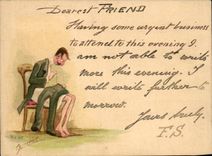 Dearest FRIEND
Having some urgent business
to attend to this evening I
am not able to write
more this evening. I
will write further to
morrow.
Yours truly.
F.S.